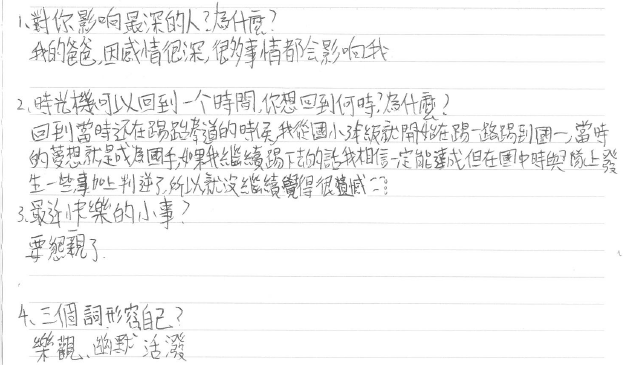 1、對你影响最深的人?為什麼?
我的爸爸,因感情很深,很多事情都会影响我
2、時光機可以回到一个時間,你想回到何時?為什麼?
回到當時还在踢跆拳道的時候,我從國小3年級就開始在踢一路踢到國一,當時
的夢想就是成為國手,如果我繼續踢下去的話我相信一定能達成,但在國中時與隊上發
生一些事加上判逆了,所以就沒繼續覺得很遺憾
3、最近快樂的小事?
要懇親了.
4、三個詞形容自己?
樂觀、幽默 活潑